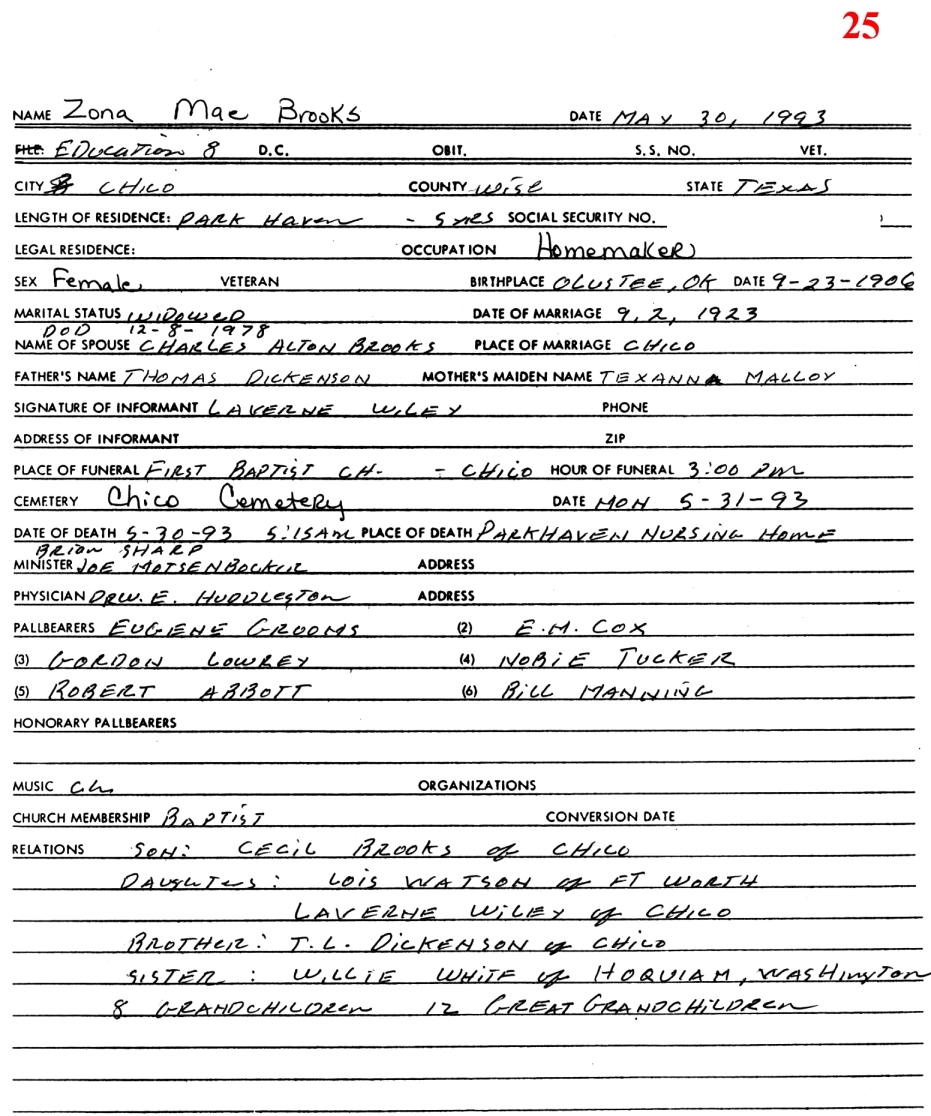 25
NAME Zona Mae Brooks DATE MAY 30, 1993
FILE: EDucation 8 D.C. OBIT. S.S. NO. VET.
CITY CHICO COUNTY WISE STATE TEXAS
LENGTH OF RESIDENCE: PARK Haven - 5 YRS SOCIAL SECURITY NO.
LEGAL RESIDENCE: OCCUPATION Homemaker
SEX Female VETERAN BIRTHPLACE OLUSTEE, OK DATE 9-23-1906
MARITAL STATUS WIDOWED DATE OF MARRIAGE 9, 2, 1923
DOD 12-8-1978
NAME OF SPOUSE CHARLES ALTON BROOKS PLACE OF MARRIAGE CHICO
FATHER'S NAME THOMAS DICKENSON MOTHER'S MAIDEN NAME TEXANNA MALLOY
SIGNATURE OF INFORMANT LAVERNE WILEY PHONE
ADDRESS OF INFORMANT ZIP
PLACE OF FUNERAL FIRST BAPTIST CH- - CHICO HOUR OF FUNERAL 3:00 PM
CEMETERY Chico Cemetery DATE MON 5-31-93
DATE OF DEATH 5-30-93 5:15AM PLACE OF DEATH PARKHAVEN NURSING HOME
BRION SHARP
MINISTER JOE MOTSENBOCKER ADDRESS
PHYSICIAN DR W. E. HUDDLESTON ADDRESS
PALLBEARERS EUGENE GROOMS (2) E.M. COX
(3) GORDON LOWREY (4) NOBIE TUCKER
(5) ROBERT ABBOTT (6) BILL MANNING
HONORARY PALLBEARERS
MUSIC Ch ORGANIZATIONS
CHURCH MEMBERSHIP BAPTIST CONVERSION DATE
RELATIONS SON: CECIL BROOKS of CHICO
DAUGHTERS: LOIS WATSON of FT WORTH
LAVERNE WILEY of CHICO
BROTHER: T.L. DICKENSON of CHICO
SISTER: WILLIE WHITE of HOQUIAM, WASHINGTON
8 GRANDCHILDREN 12 GREAT GRANDCHILDREN